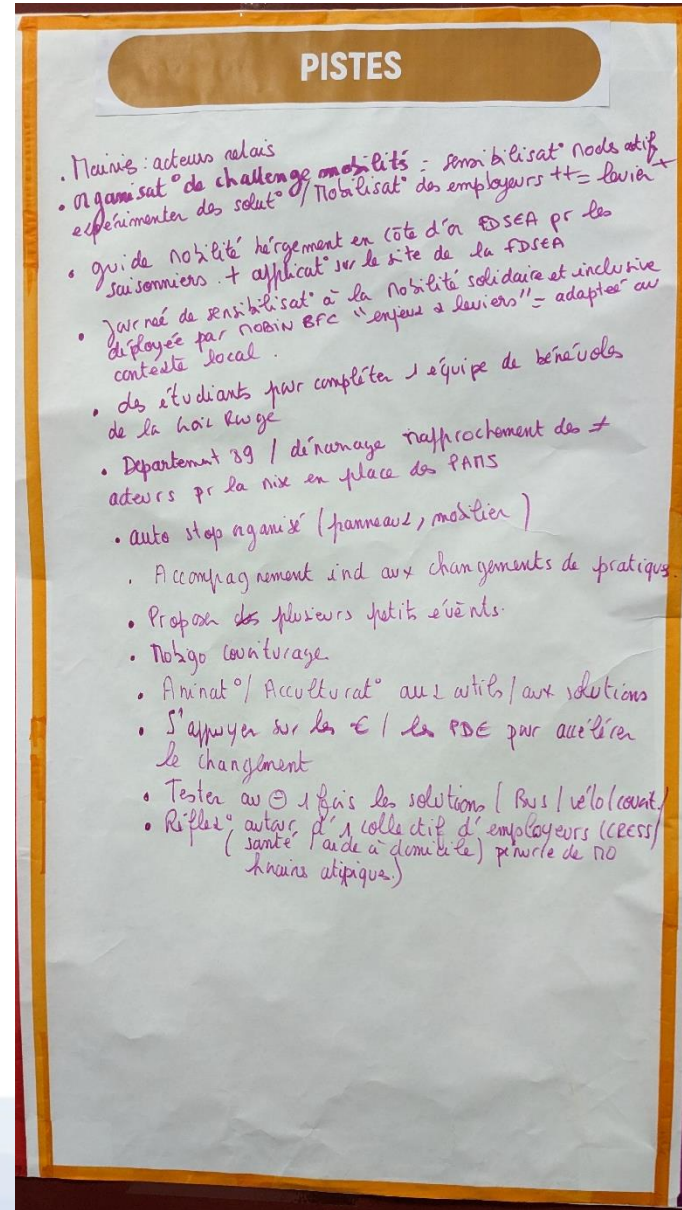 PISTES
. Mairie : acteurs relais
. organisat° de challenge mobilités = sensibilisat° mode actif
expérimenter des solut° / Mobilisat° des employeurs ++ = levier +
• guide mobilité hérgement en côte d'or FDSEA pr les
saisonniers. + applicat° sur le site de la FDSEA
• Journeé de sensibilisat° à la Mobilité solidaire et inclusive
déployée par MOBIN BFC "enjeux & leviers" = adapteé au
contexte local.
• des étudiants pour compléter 1 équipe de bénévoles
de la Croix Rouge
• Departement 39 / démarrage rapprochement des ≠
acteurs pr la mise en place des PAMS
• auto stop organisé (panneaux, mobilier)
. Accompagnement ind aux changements de pratiques.
• Proposer des plusieurs petits évènts.
• Mobigo covoiturage
• Animat° / Acculturat° aux outils / aux solutions
• S'appuyer sur les € / les PDE pour accélérer
le changement
• Tester au ⊖ 1 fois les solutions (Bus / vélo / covoit /
• Réflex° autour d'1 collectif d'employeurs (CRESS /
( santé / aide à domicile) pénurie de MO
horaires atipiques.)